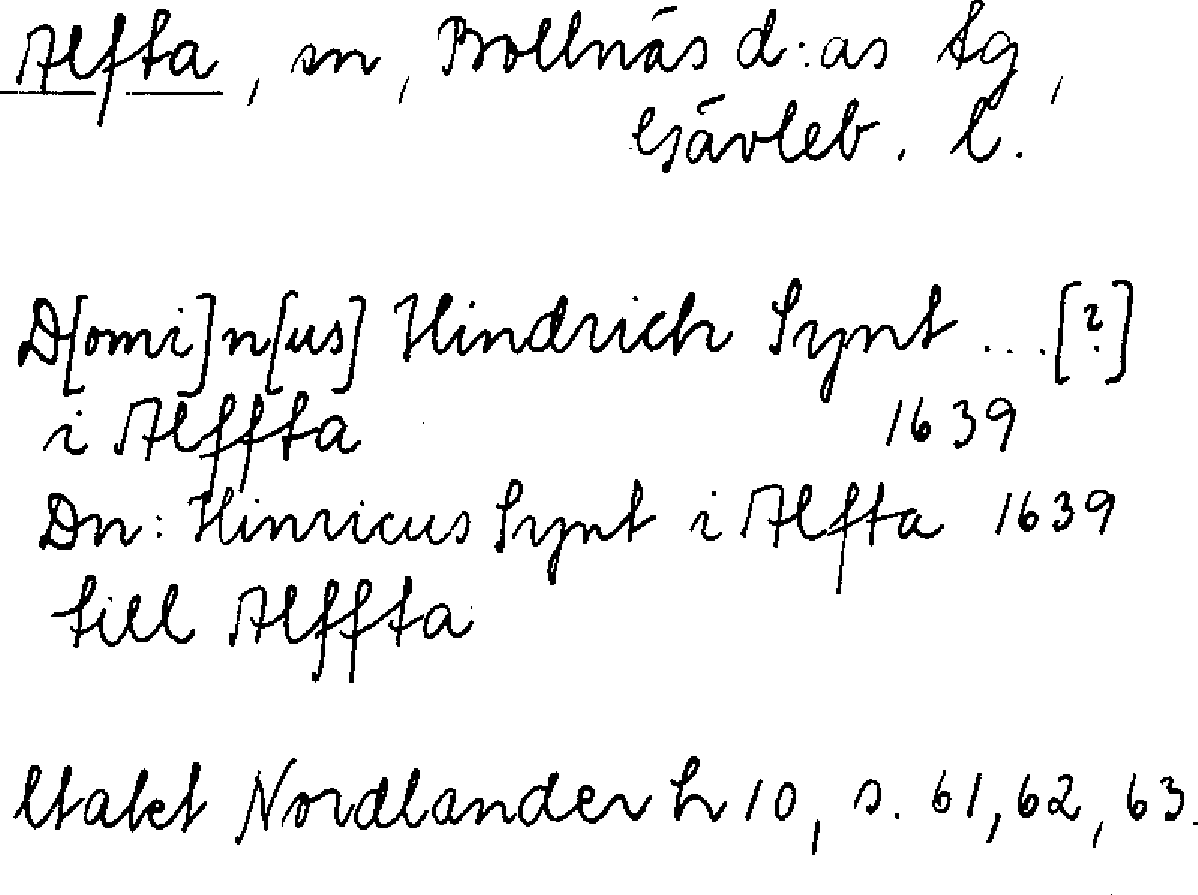 Alfta, sn, Bollnäs d:as tg,
Gävleb. l.
D[omi]n[us] Hindrich Synt ... [?]
i Alffta 1639
Dn: Hinricus Synt i Alfta 1639
till Alffta
Utakt Nordlander h 10, s. 61, 62, 63.